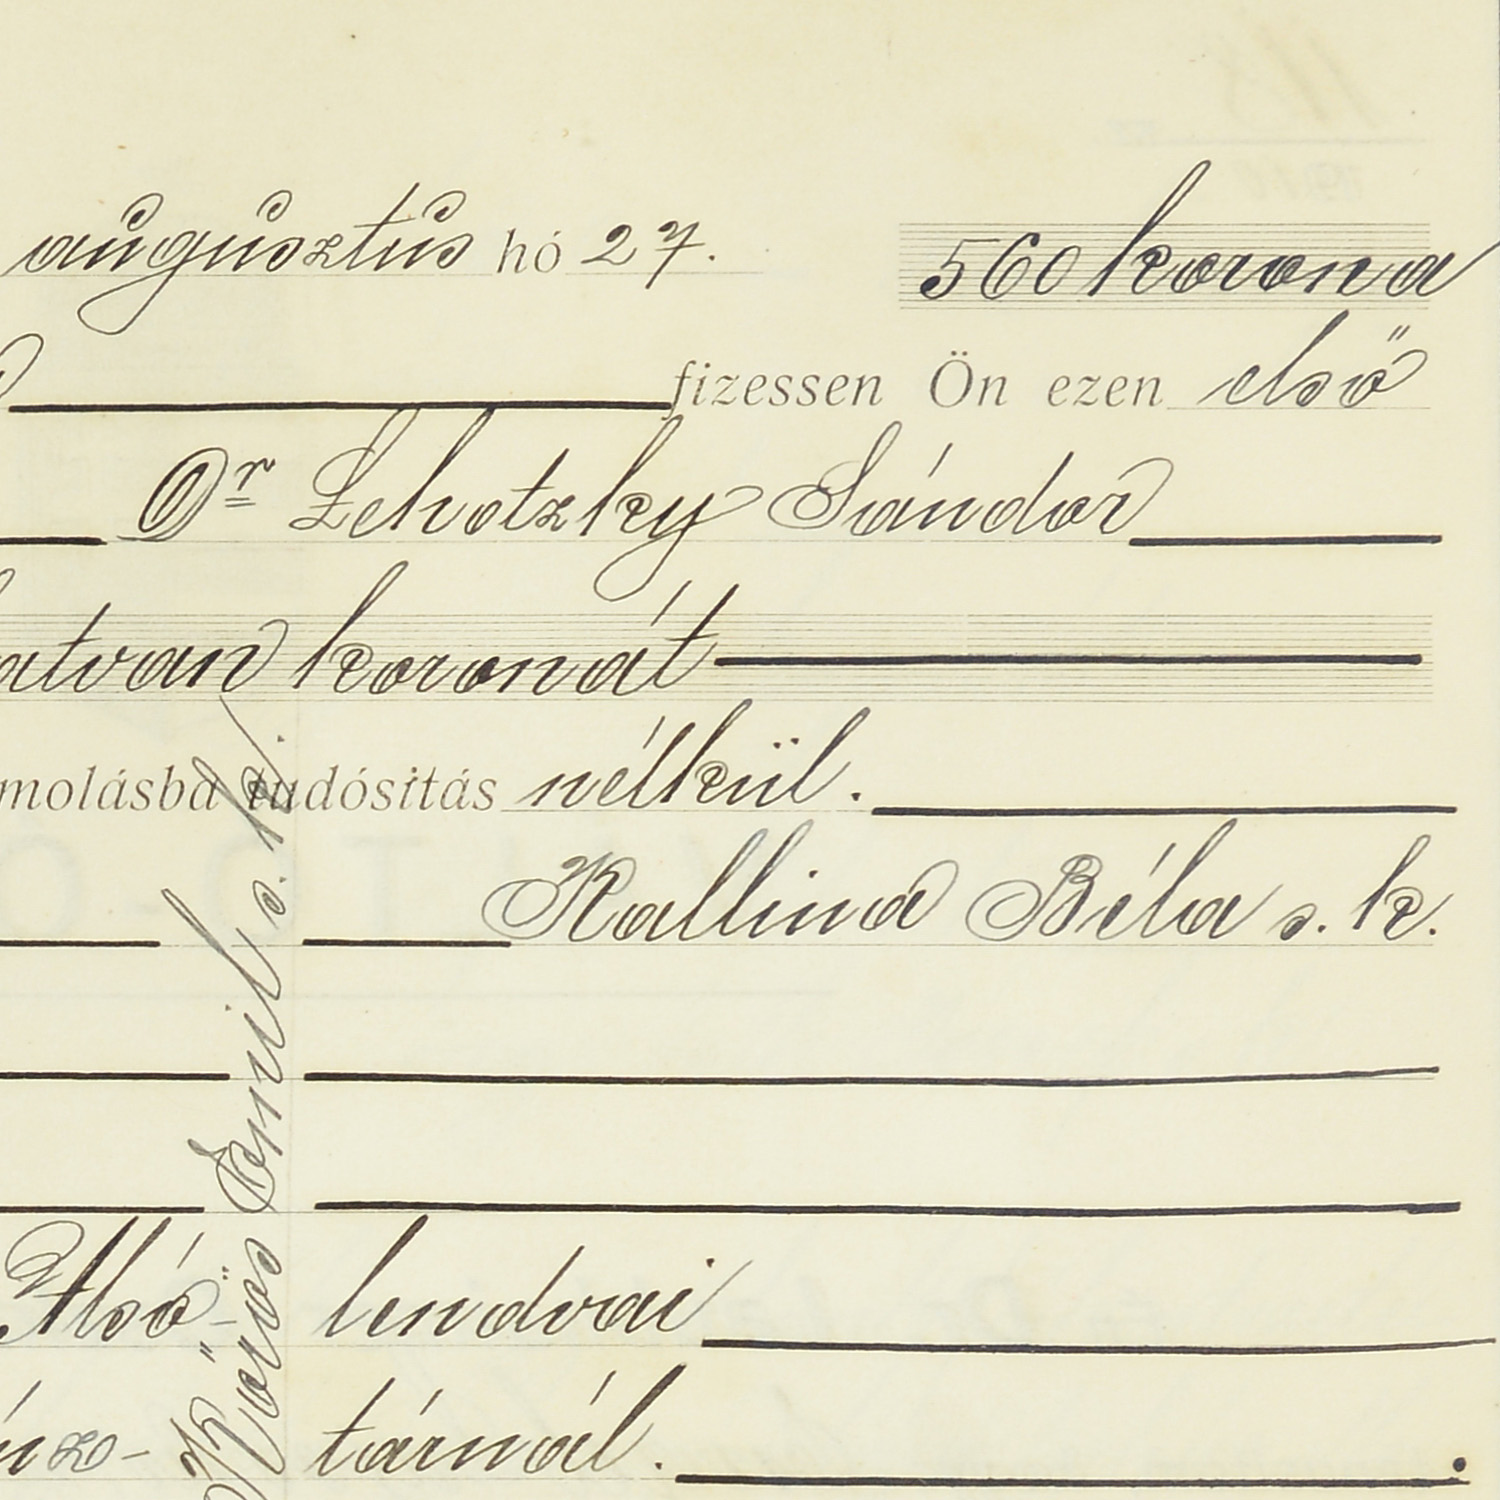 augusztus hó 27. 560 korona
fizessen Ön ezen első
Dr Lehotzky Sándor
atvan koronát
molásba tudósítás nélkül.
Kallina Béla s. k.
Alsó- lendvai
nz- tárnál.
Kőrös Ernil s. k.